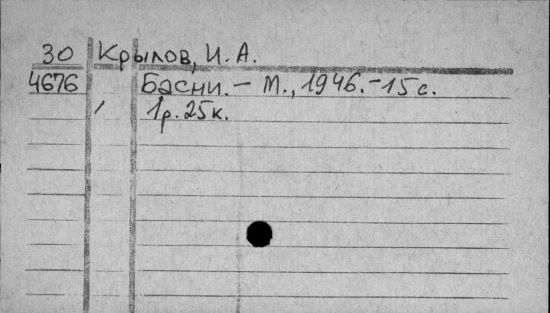 30 Крылов, И. А.
4676 Басни. – М., 1946. – 15 с.
1р. 25к.